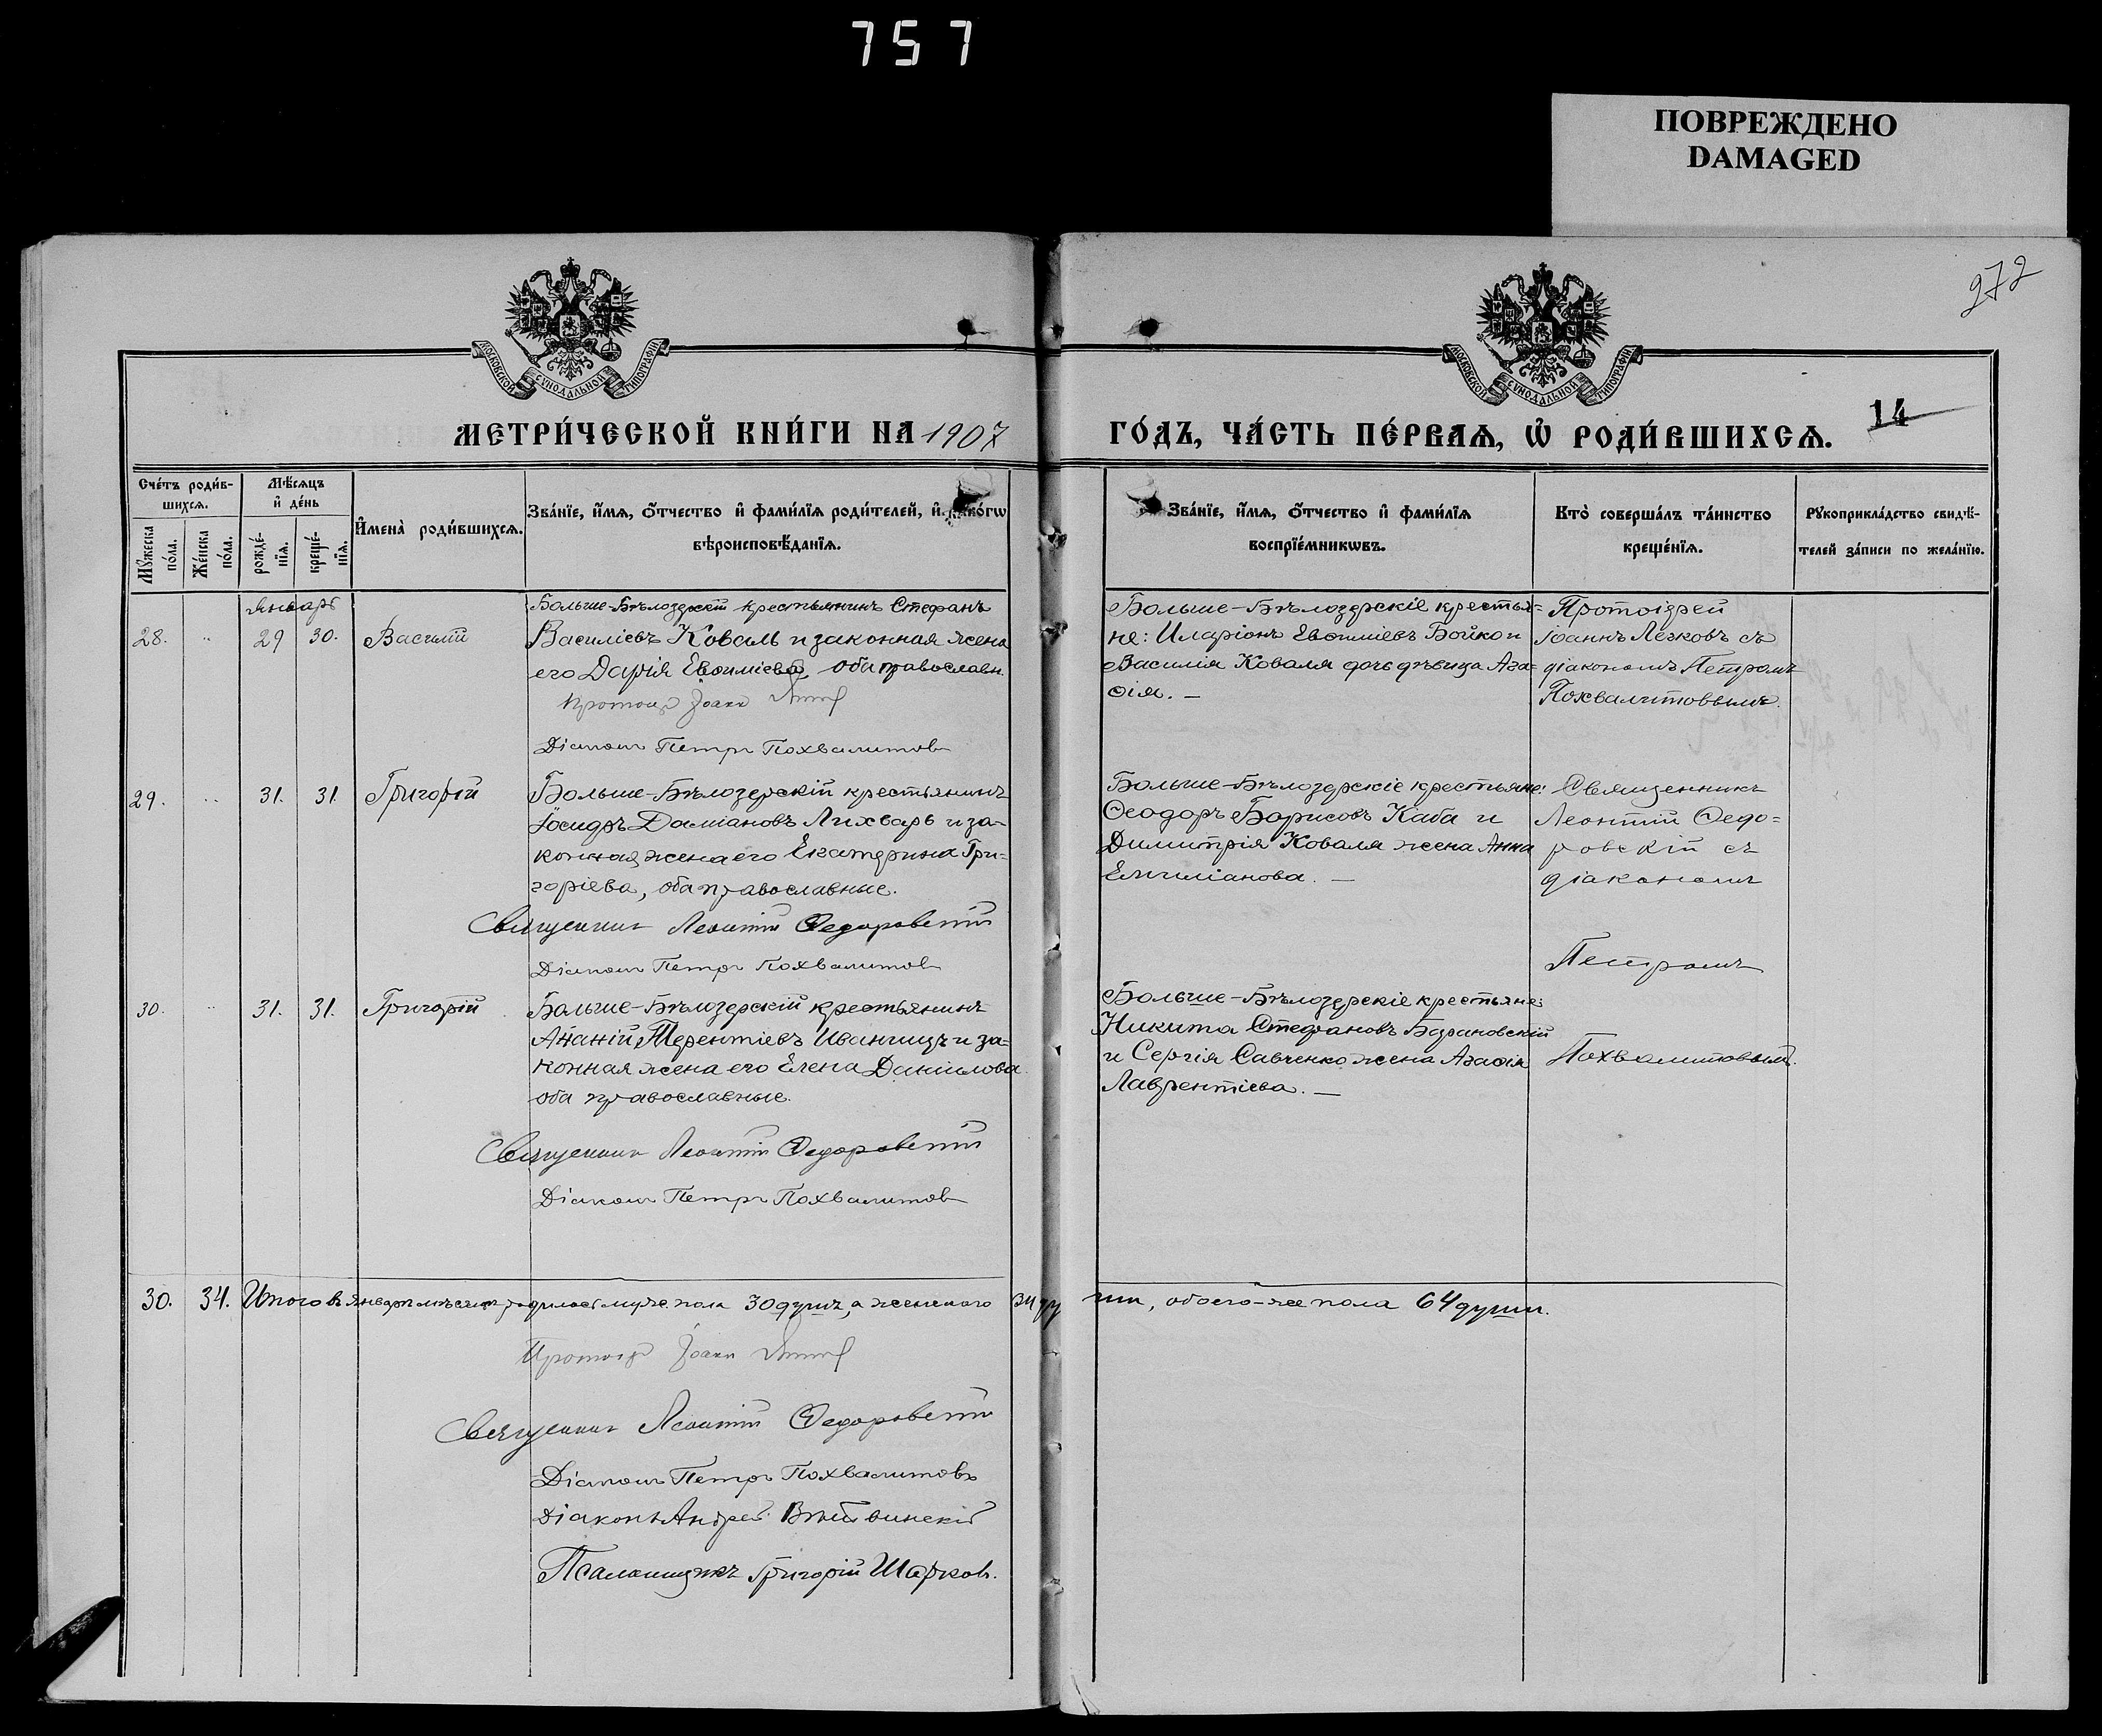 757
ПОВРЕЖДЕНО
DAMAGED
272
МОСКОВСКОЙ СѴНОДАЛЬНОЙ ТИПОГРАФІИ
МОСКОВСКОЙ СѴНОДАЛЬНОЙ ТИПОГРАФІИ
МЕТРИ́ЧЕСКОЙ КНИ́ГИ НА 1907
ГО́ДЪ, ЧА́СТЬ ПЕ́РВАЯ, Ѡ҆ РОДИ́ВШИХСЯ.
14
Сче́тъ роди́в-
шихся.
Мꙋжеска по́ла.
Же́нска по́ла.
Мѣ́сяцъ
и҆ де́нь
рожде́-нїя.
креще́-нїя.
И҆мена̀ роди́вшихся.
Зва́нїе, и҆́мя, ѻ҆́тчество и҆ фами́лїя роди́телей, и҆ како́гѡ
вѣроисповѣ́данїя.
Зва́нїе, и҆́мя, ѻ҆́тчество и҆ фами́лїя
воспрїе́мникѡвъ.
Кто̀ соверша́лъ та́инство
креще́нїя.
Рꙋкоприкла́дство свидѣ́-
телей за́писи по жела́нїю.
Январь
28. „ 29 30. Василій
Больше-Бѣлозерскій крестьянинъ Стефанъ
Василіевъ Коваль и законная жена
его Дарія Евѳиміева, оба православн.
Протоіер Іоанн
Діакон Петръ Похвалитов
Больше-Бѣлозерскіе крестья-
не: Иларіонъ Евѳиміевъ Бойко и
Василія Коваля дочь дѣвица Ага-
ѳія. —
Протоіерей
Іоаннъ Легковъ съ
діакономъ Петромъ
Похвалитовымъ.
29. „ 31. 31. Григорій
Больше-Бѣлозерскій крестьянинъ
Іосифъ Даміановъ Лихварь и за-
конная жена его Екатерина Гри-
горіева, оба православные.
Священник Леонтій Федоровскій
Діакон Петръ Похвалитов
Больше-Бѣлозерскіе крестьяне:
Ѳеодоръ Борисовъ Каба и
Димитрія Коваля жена Анна
Емиліанова. —
Священникъ
Леонтій Федо-
ровскій съ
діакономъ
Петромъ
Похвалитовымъ.
30. „ 31. 31. Григорій
Больше-Бѣлозерскій крестьянинъ
Ананій Терентіевъ Иваница и за-
конная жена его Елена Даніилова
оба православные.
Священник Леонтій Федоровскій
Діакон Петръ Похвалитов
Больше-Бѣлозерскіе крестьяне:
Никита Стефановъ Барановскій
и Сергія Савченко жена Агаѳія
Лаврентіева. —
30. 34. Итого въ январѣ мѣсяцѣ родилось муж. пола 30 душъ, а женскаго 34 ду
ши, обоего-же пола 64 души.
Протоіер Іоанн
Священник Леонтій Федоровскій
Діакон Петръ Похвалитовъ
Діаконъ Андрей
Псаломщикъ Григорій Шарков.